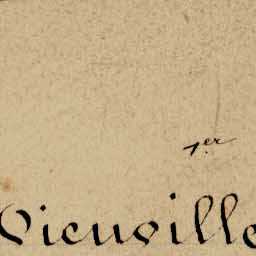 1er
Vieuville